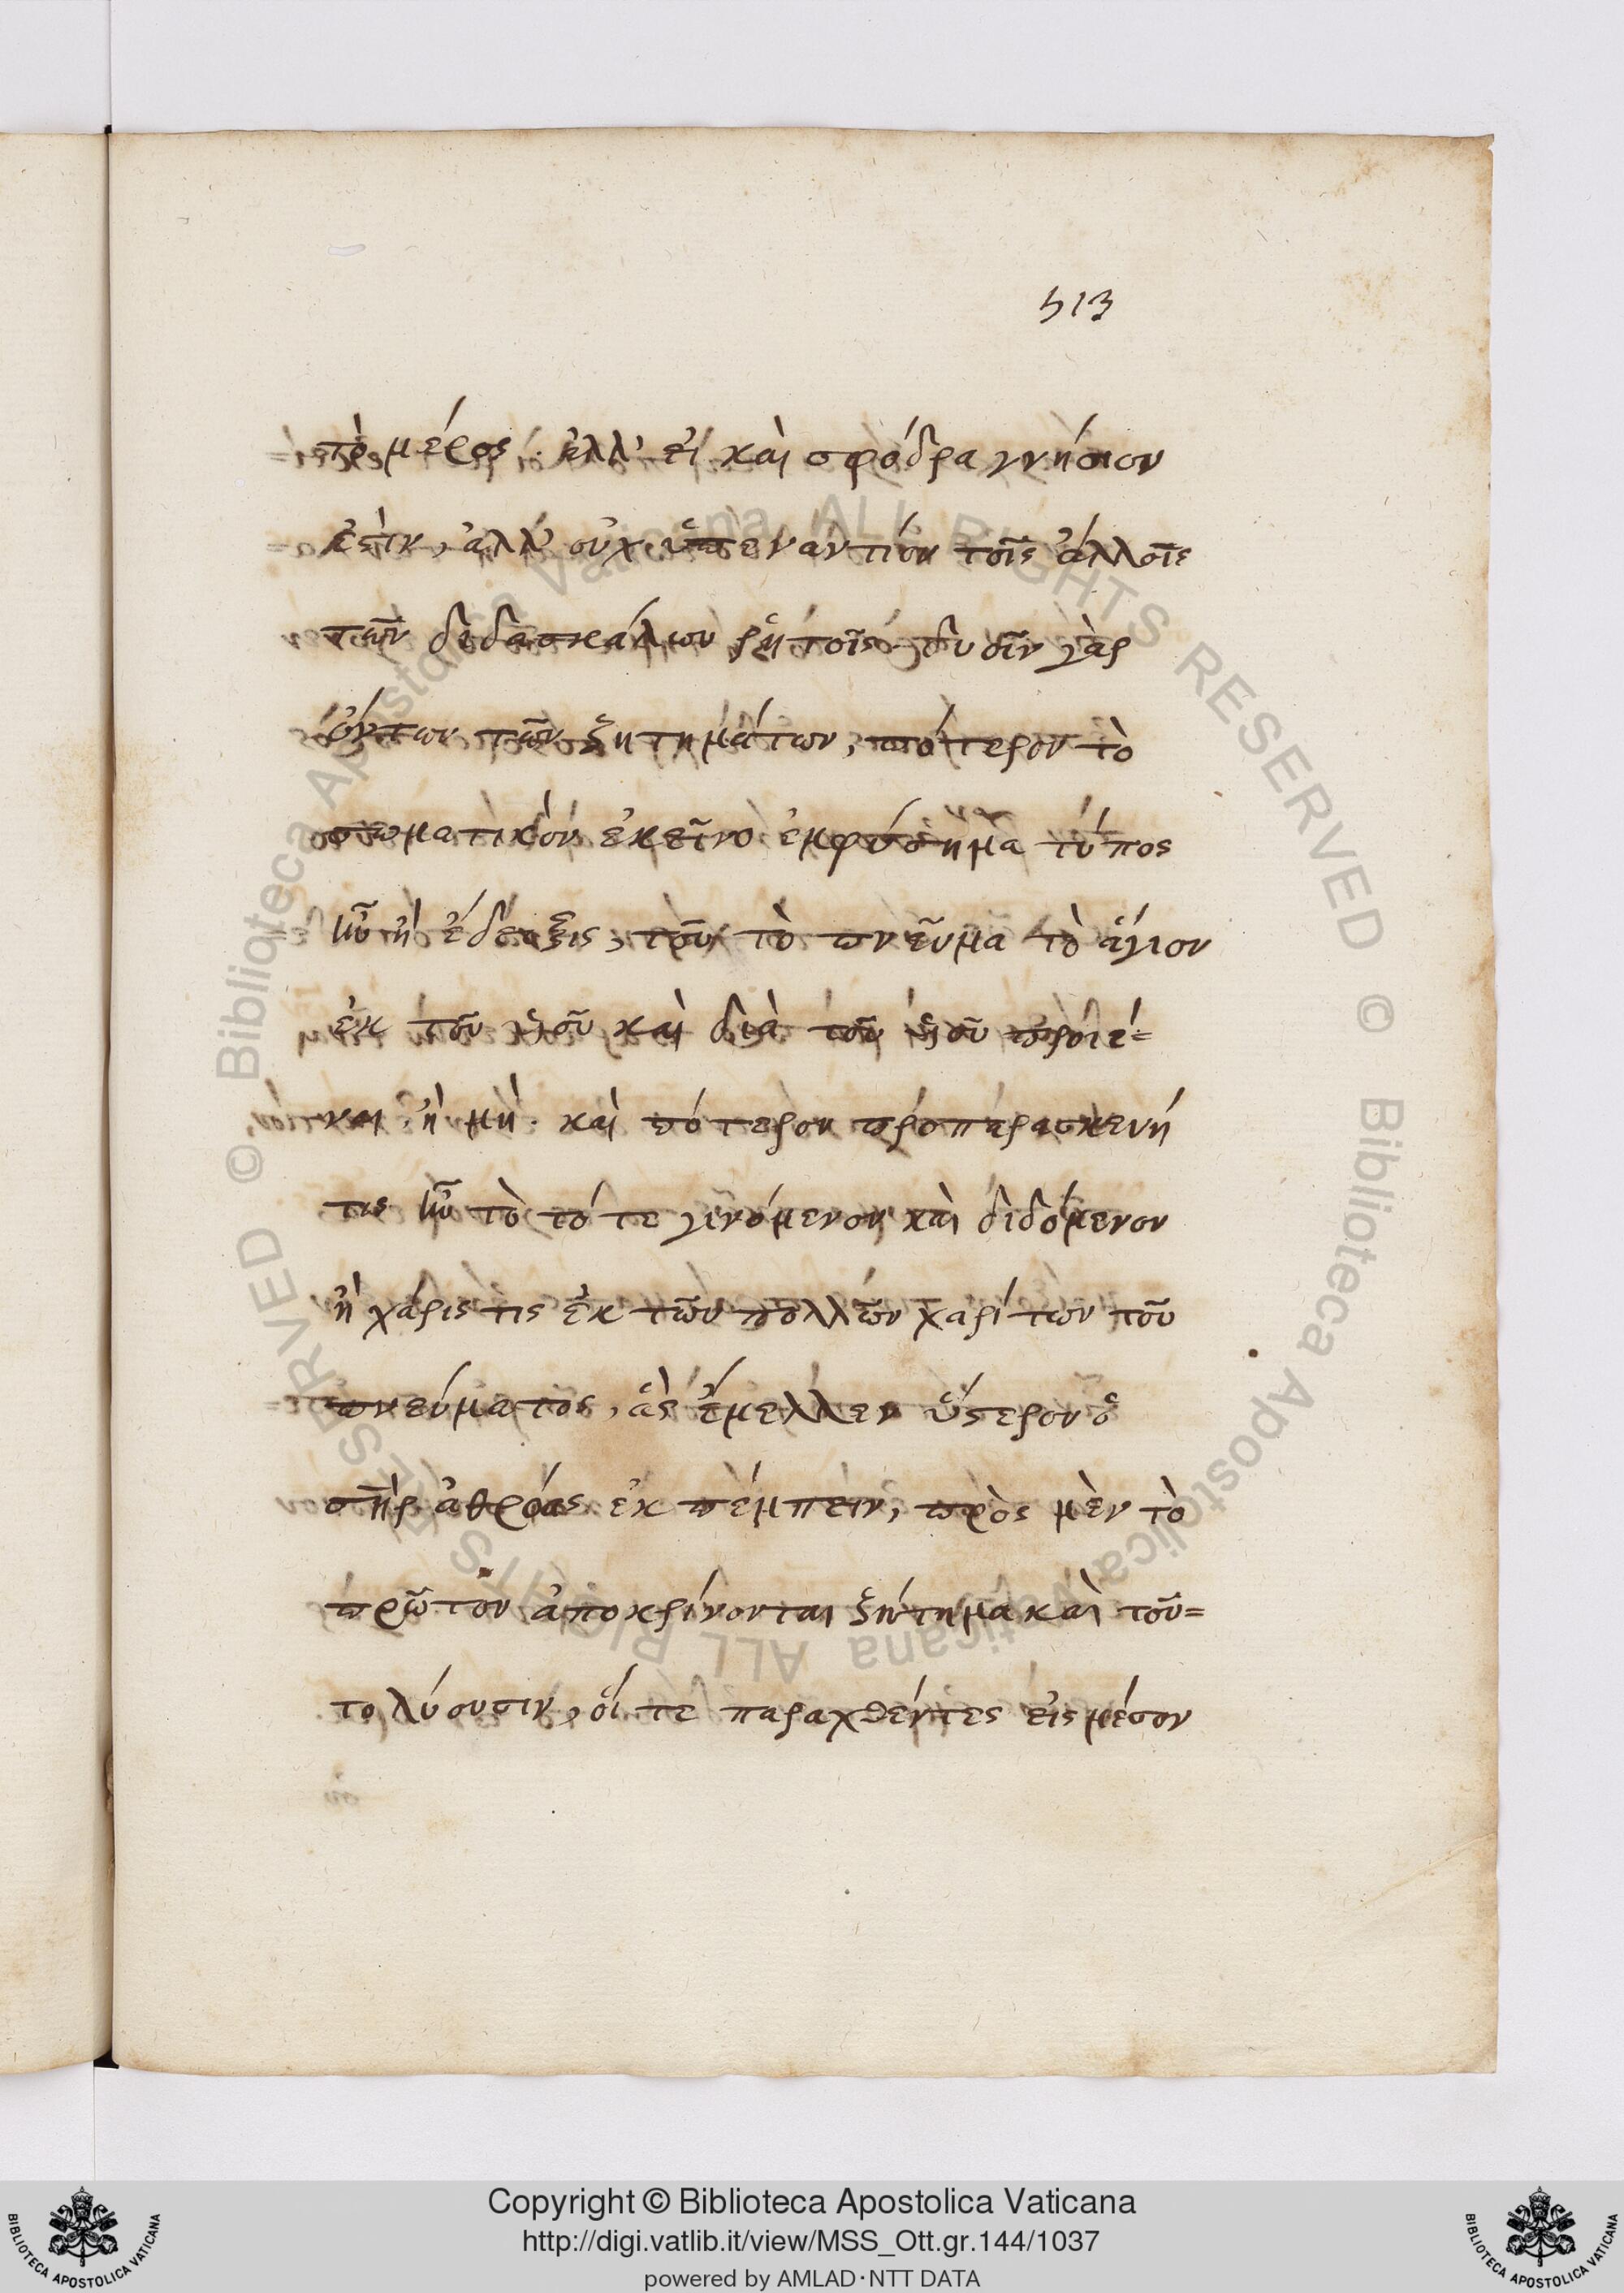 513
τὸ μέρος. ἀλλ' εἰ καὶ σφόδρα γνήσιον
ἐστὶν, ἀλλ' οὐχ ὑπεναντίον τοῖς ἄλλοις
τῶν διδασκάλων ῥητοῖς. δυοῖν γὰρ
ὄντων τῶν ζητημάτων, πότερον τὸ
σωματικὸν ἐκεῖνο ἐμφύσημα τύπος
ἦν ἢ ἔδειξις, τοῦ τὸ πνεῦμα τὸ ἅγιον
ἐκ τοῦ υἱοῦ καὶ διὰ τοῦ υἱοῦ προϊέ=
ναι, ἢ μή. καὶ πότερον προπαρασκευή
τις ἦν τὸ τότε γινόμενον καὶ διδόμενον
ἢ χάρις τις ἐκ τῶν πολλῶν χαρίτων τοῦ
πνεύματος, ἃς ἔμελλεν ὕστερον ὁ
σὴρ ἀθρόας ἐκπέμπειν, πρὸς μὲν τὸ
πρῶτον ἀποκρίνονται ζήτημα καὶ τοῦ=
το λύουσιν, οἵ τε παραχθέντες εἰς μέσον
Copyright © Biblioteca Apostolica Vaticana
http://digi.vatlib.it/view/MSS_Ott.gr.144/1037
powered by AMLAD·NTT DATA
BIBLIOTECA APOSTOLICA VATICANA
BIBLIOTECA APOSTOLICA VATICANA
© Biblioteca Apostolica Vaticana ALL RIGHTS RESERVED
© Biblioteca Apostolica Vaticana ALL RIGHTS RESERVED